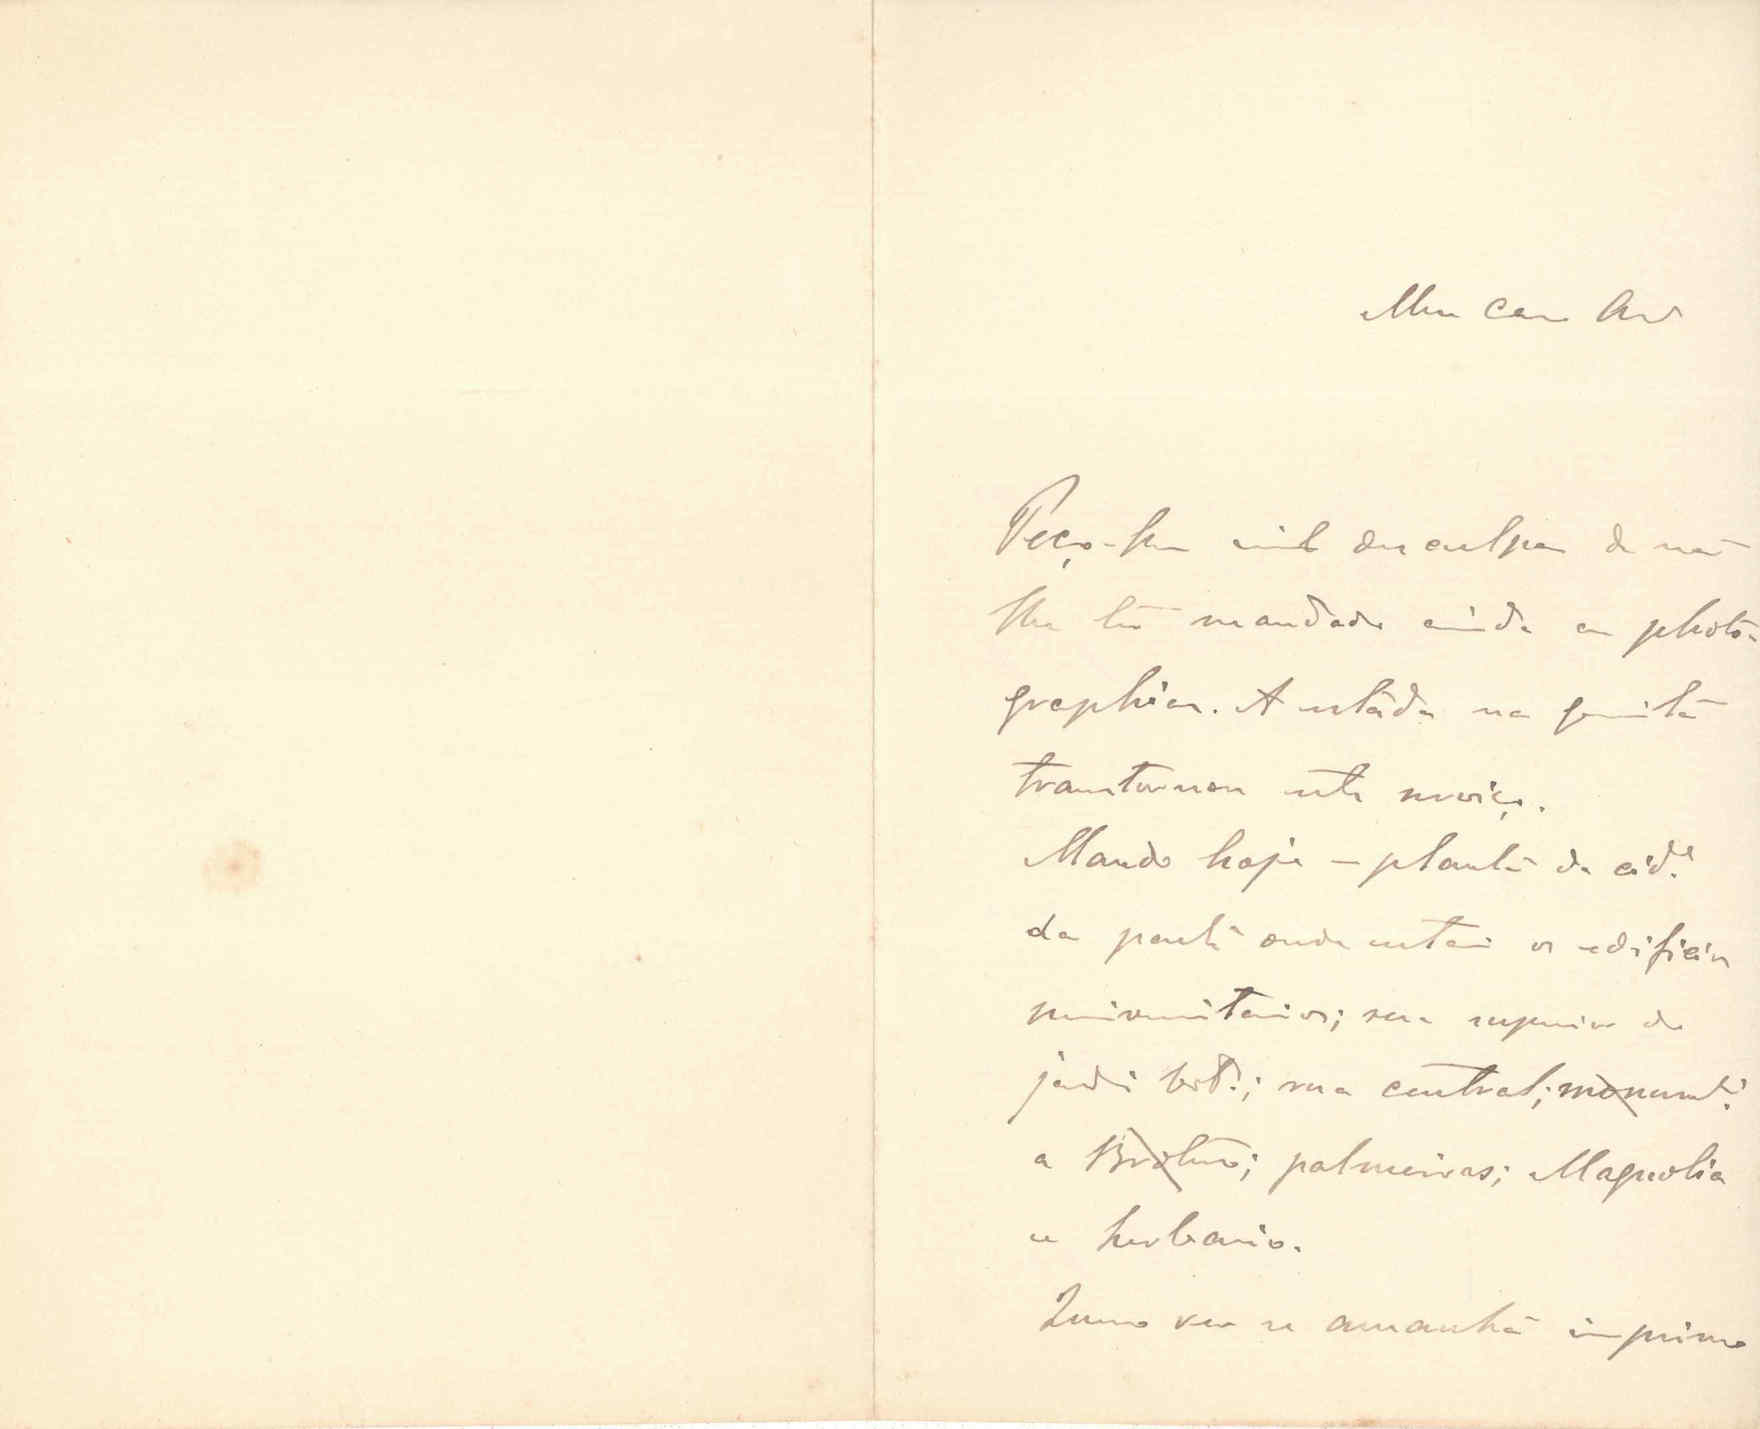 Meu caro
Peço-lhe mil desculpas de não
lhe ter mandado ainda as photo-
graphias. A estada na quinta
transtornou este serviço.
Mando hoje – planta da cid.e
da parte onde estão os edificios
universitarios; rua superior do
jardi bot.; rua central; monumt.o
a Brotero; palmeiras; Magnolia
e herbario.
Quero ver se amanhã imprimo